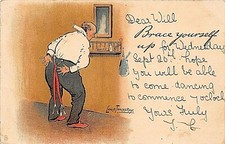 Dear Will
Brace yourself
up for Wednesday
Sept 26th. hope
you will be able
to come dancing
to commence 7 oclock
Yours Truly